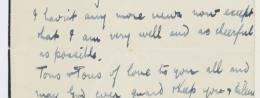 I haven't any more news now except
that I am very well and as cheerful
as possible.
Tons & Tons of love to you all and
may God ever guard & keep you & bless